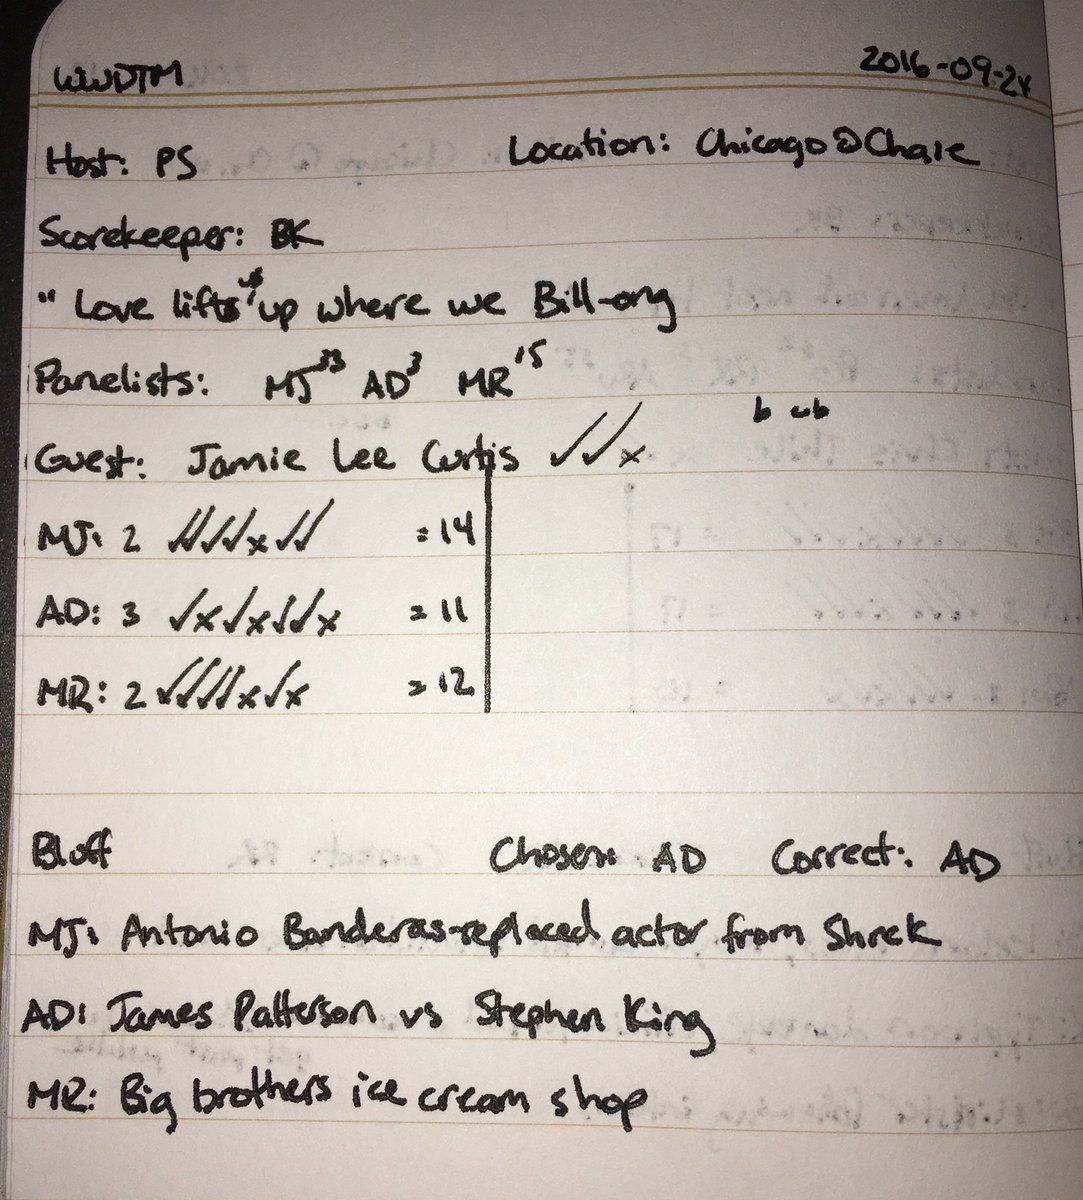 WWDTM 2016-09-24
Host: PS Location: Chicago@Chase
Scorekeeper: BK
"Love lifts us up where we Bill-ong
Panelists: MJ33 AD3 MR15
b ub
Guest: Jamie Lee Curtis ✓✓x
MJ: 2 ✓✓✓✓x✓✓ =14
AD: 3 ✓x✓x✓✓x =11
MR: 2 ✓✓✓✓x✓x =12
Bluff Chosen: AD Correct: AD
MJ: Antonio Banderas-replaced actor from Shrek
AD: James Patterson vs Stephen King
MR: Big brothers ice cream shop